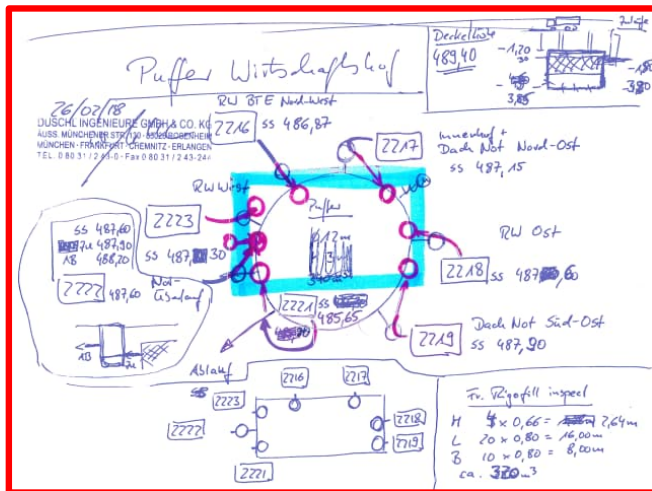 Puffer Wirtschaftshof
Deckelhöhe
489,40
-1,20
Zuläufe
3,85
26/02/18
DUSCHL INGENIEURE GMBH & CO. KG
ÄUSS. MÜNCHENER STR. 130 · 83026 ROSENHEIM
MÜNCHEN · FRANKFURT · CHEMNITZ · ERLANGEN
TEL. 0 80 31 / 2 43-0 · Fax 0 80 31 / 2 43-244
RW BTE Nord-West
2216 SS 486,87
2217
Innenhof +
Dach Not Nord-Ost
SS 487,15
RW West
2223
SS 487, 30
Puffer
RW Ost
2218 SS 487 ,60
SS 487,60
Zu 487,90
1B 488,20
2222 487,60
Not-
Überlauf
1B
Zu
2221 SS
485,65
Dach Not Süd-Ost
2219 SS 487,90
Ablauf
2216
2217
2223
2222
2218
2219
2221
Fr. Rigofill inspect
H 4 x 0,66 = 2,64m
L 20 x 0,80 = 16,00m
B 10 x 0,80 = 8,00m
ca. 320 m³